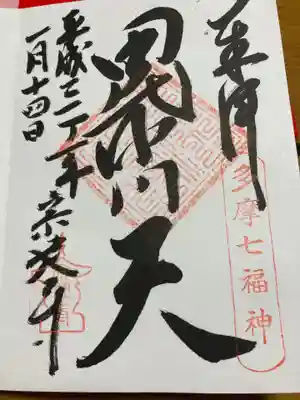 奉拝
多摩七福神
毘沙門天
平成三十一年
一月十四日